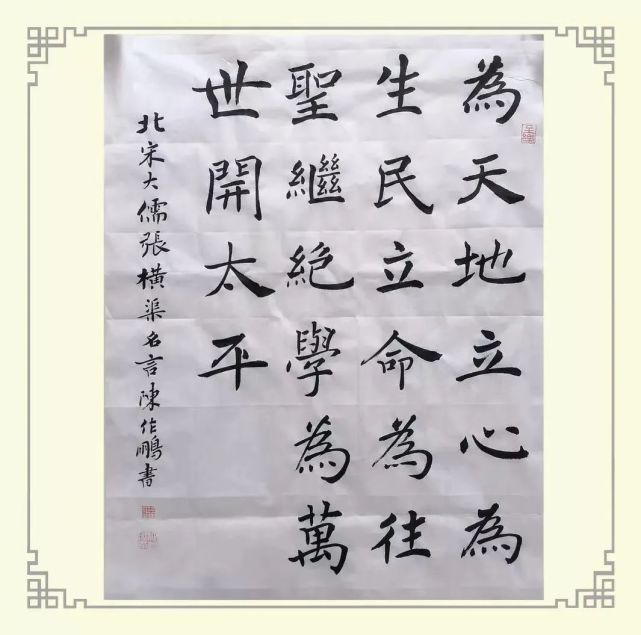 為天地立心為
生民立命為往
聖繼絕學為萬
世開太平
北宋大儒張橫渠名言陳作鵬書